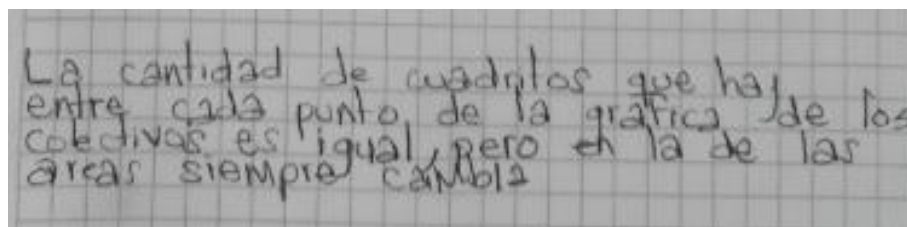 La cantidad de cuadritos que hay
entre cada punto de la gráfica de los
colectivos es igual, pero en la de las
áreas siempre cambia